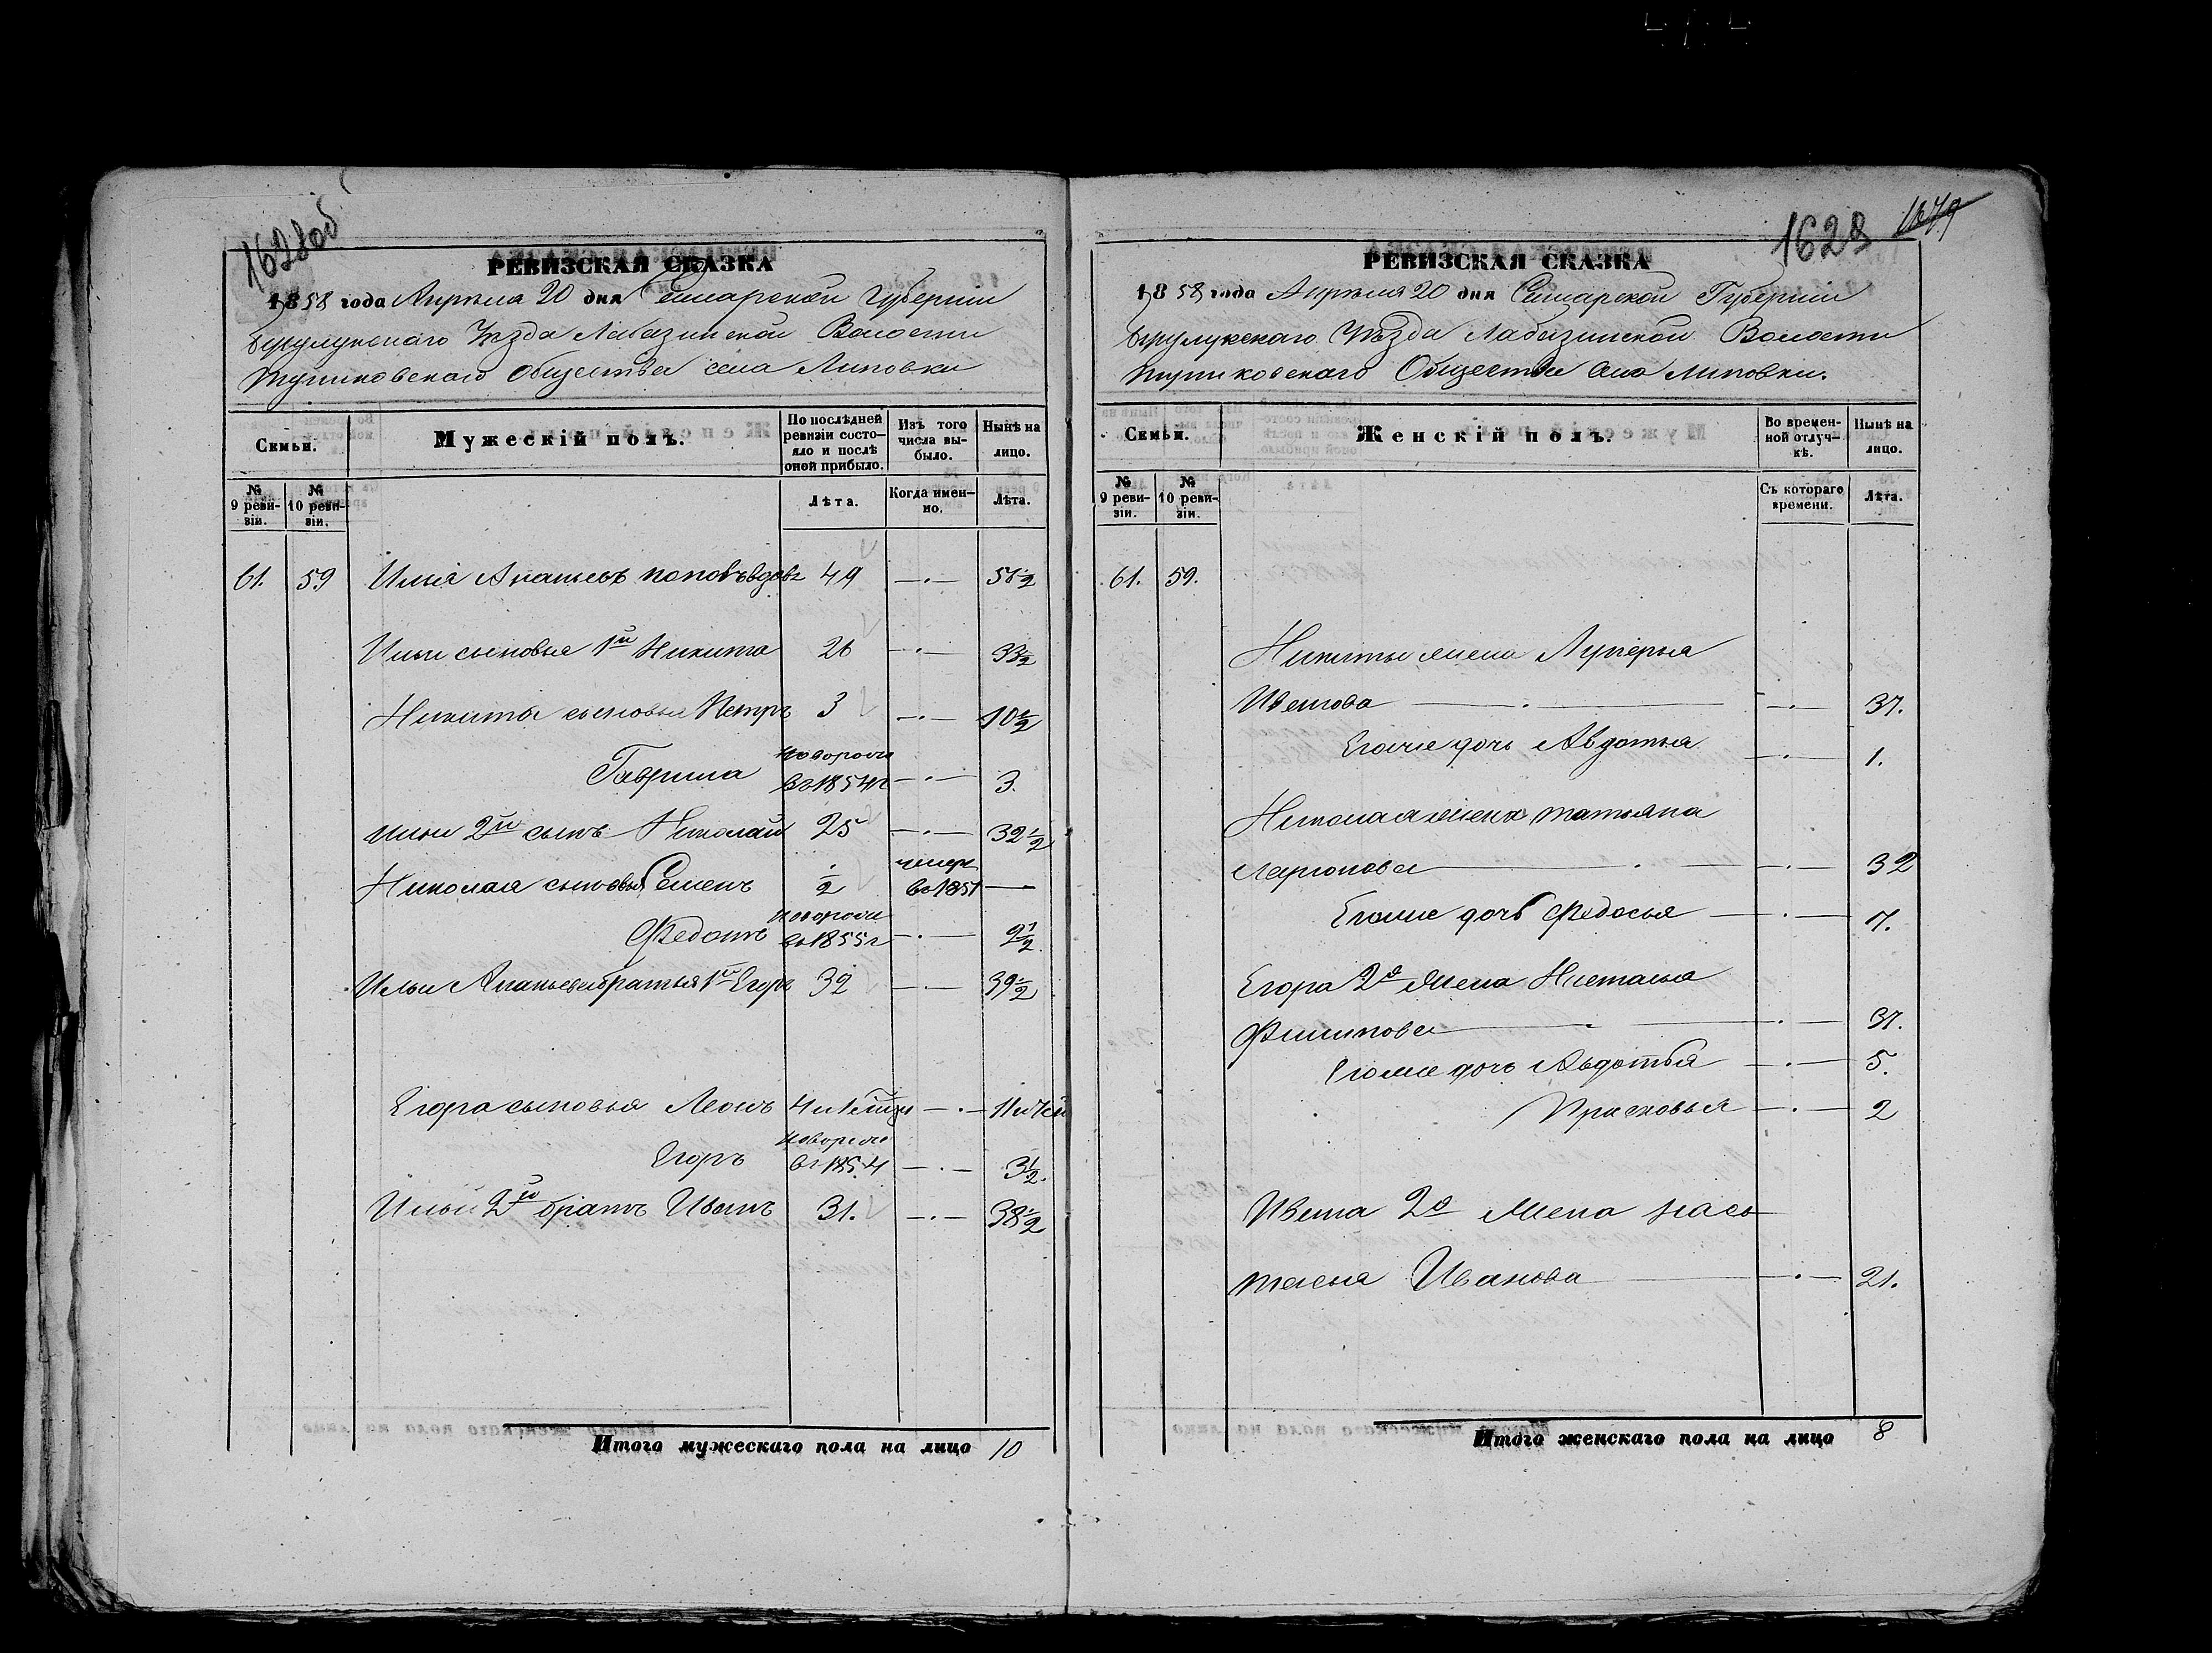 1628об
РЕВИЗСКАЯ СКАЗКА
1858 года Апреля 20 дня Самарской Губернии
Бузулукского Уезда Лабазинской Волости
Общества села Липовки
Семьи.
Мужескій полъ.
По послѣдней ревизіи состояло и послѣ оной прибыло.
Изъ того числа выбыло.
Нынѣ на лицо.
№ 9 ревизіи.
№ 10 ревизіи.
Лѣта.
Когда именно.
Лѣта.
61. 59 Илья Ананьевъ Поповъ вдовъ 49 —·— 56 1/2
Ильи сыновья 1й Никита 26 —·— 33 1/2
Никиты сыновья Петръ 3 —·— 10 1/2
Гаврила новорож въ 1854 г —·— 3.
Ильи 2й сынъ Николай 25 —·— 32 1/2
Николая сыновья Семенъ 1/2 умеръ въ 1851 —
Федотъ новорож въ 1855 г —·— 2 1/2
Ильи Ананьева братья 1й Егоръ 32 —·— 39 1/2
Егора сыновья Леонъ 4 —·— 11
Егоръ новорож въ 1854 —·— 3 1/2.
Ильи 2й братъ Иванъ 31. —·— 38 1/2
Итого мужескаго пола на лицо 10
1628 1679
РЕВИЗСКАЯ СКАЗКА
1858 года Апреля 20 дня Самарской Губернии
Бузулукскаго Уѣзда Лабазинской Волости
Общества села Липовки.
Семьи.
Женскій полъ.
Во временной отлучкѣ.
Нынѣ на лицо.
№ 9 ревизіи.
№ 10 ревизіи.
Съ котораго времени.
Лѣта.
61. 59.
Никиты жена Лукерья
Иванова —·— 37.
Егоже дочь Авдотья —·— 1.
Николая жена Татьяна
Ларионова —·— 32
Егоже дочь Федосья —·— 7.
Егора 2я жена Настасья
Филипова —·— 37.
Егоже дочь Авдотья —·— 5.
Прасковья —·— 2
Ивана 2я жена Нас
тасья Иванова —·— 21.
Итого женскаго пола на лицо 8